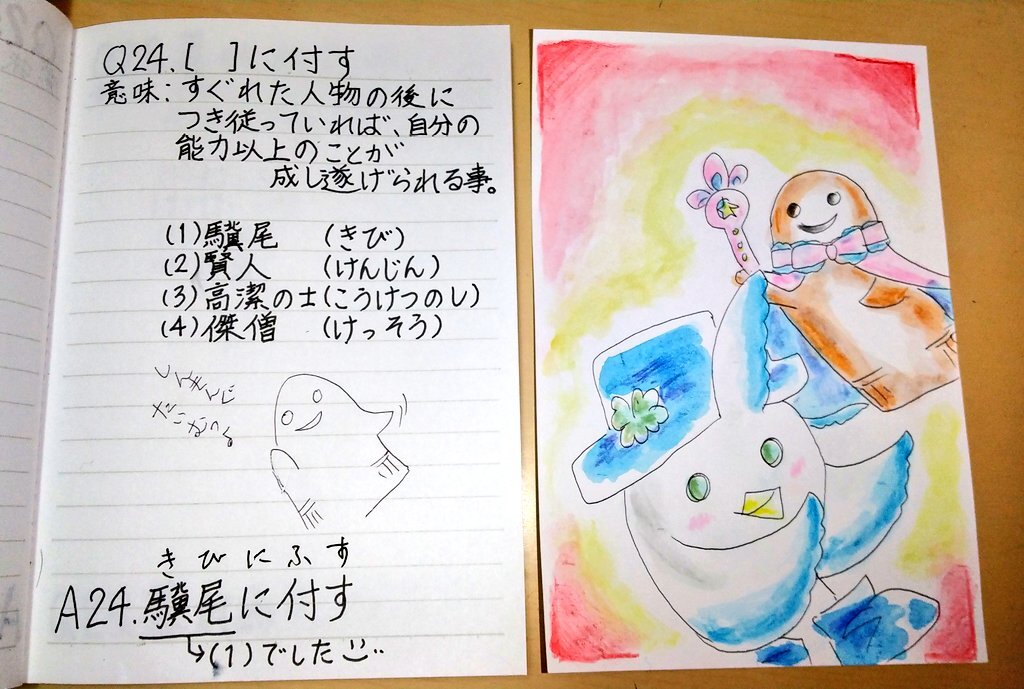 Q24.[ ]に付す
意味:すぐれた人物の後に
つき従っていれば、自分の
能力以上のことが
成し遂げられる事。
(1)驥尾 (きび)
(2)賢人 (けんじん)
(3)高潔の士(こうけつのし)
(4)傑僧 (けっそう)
きびにふす
A24.驥尾に付す
→(1)でした